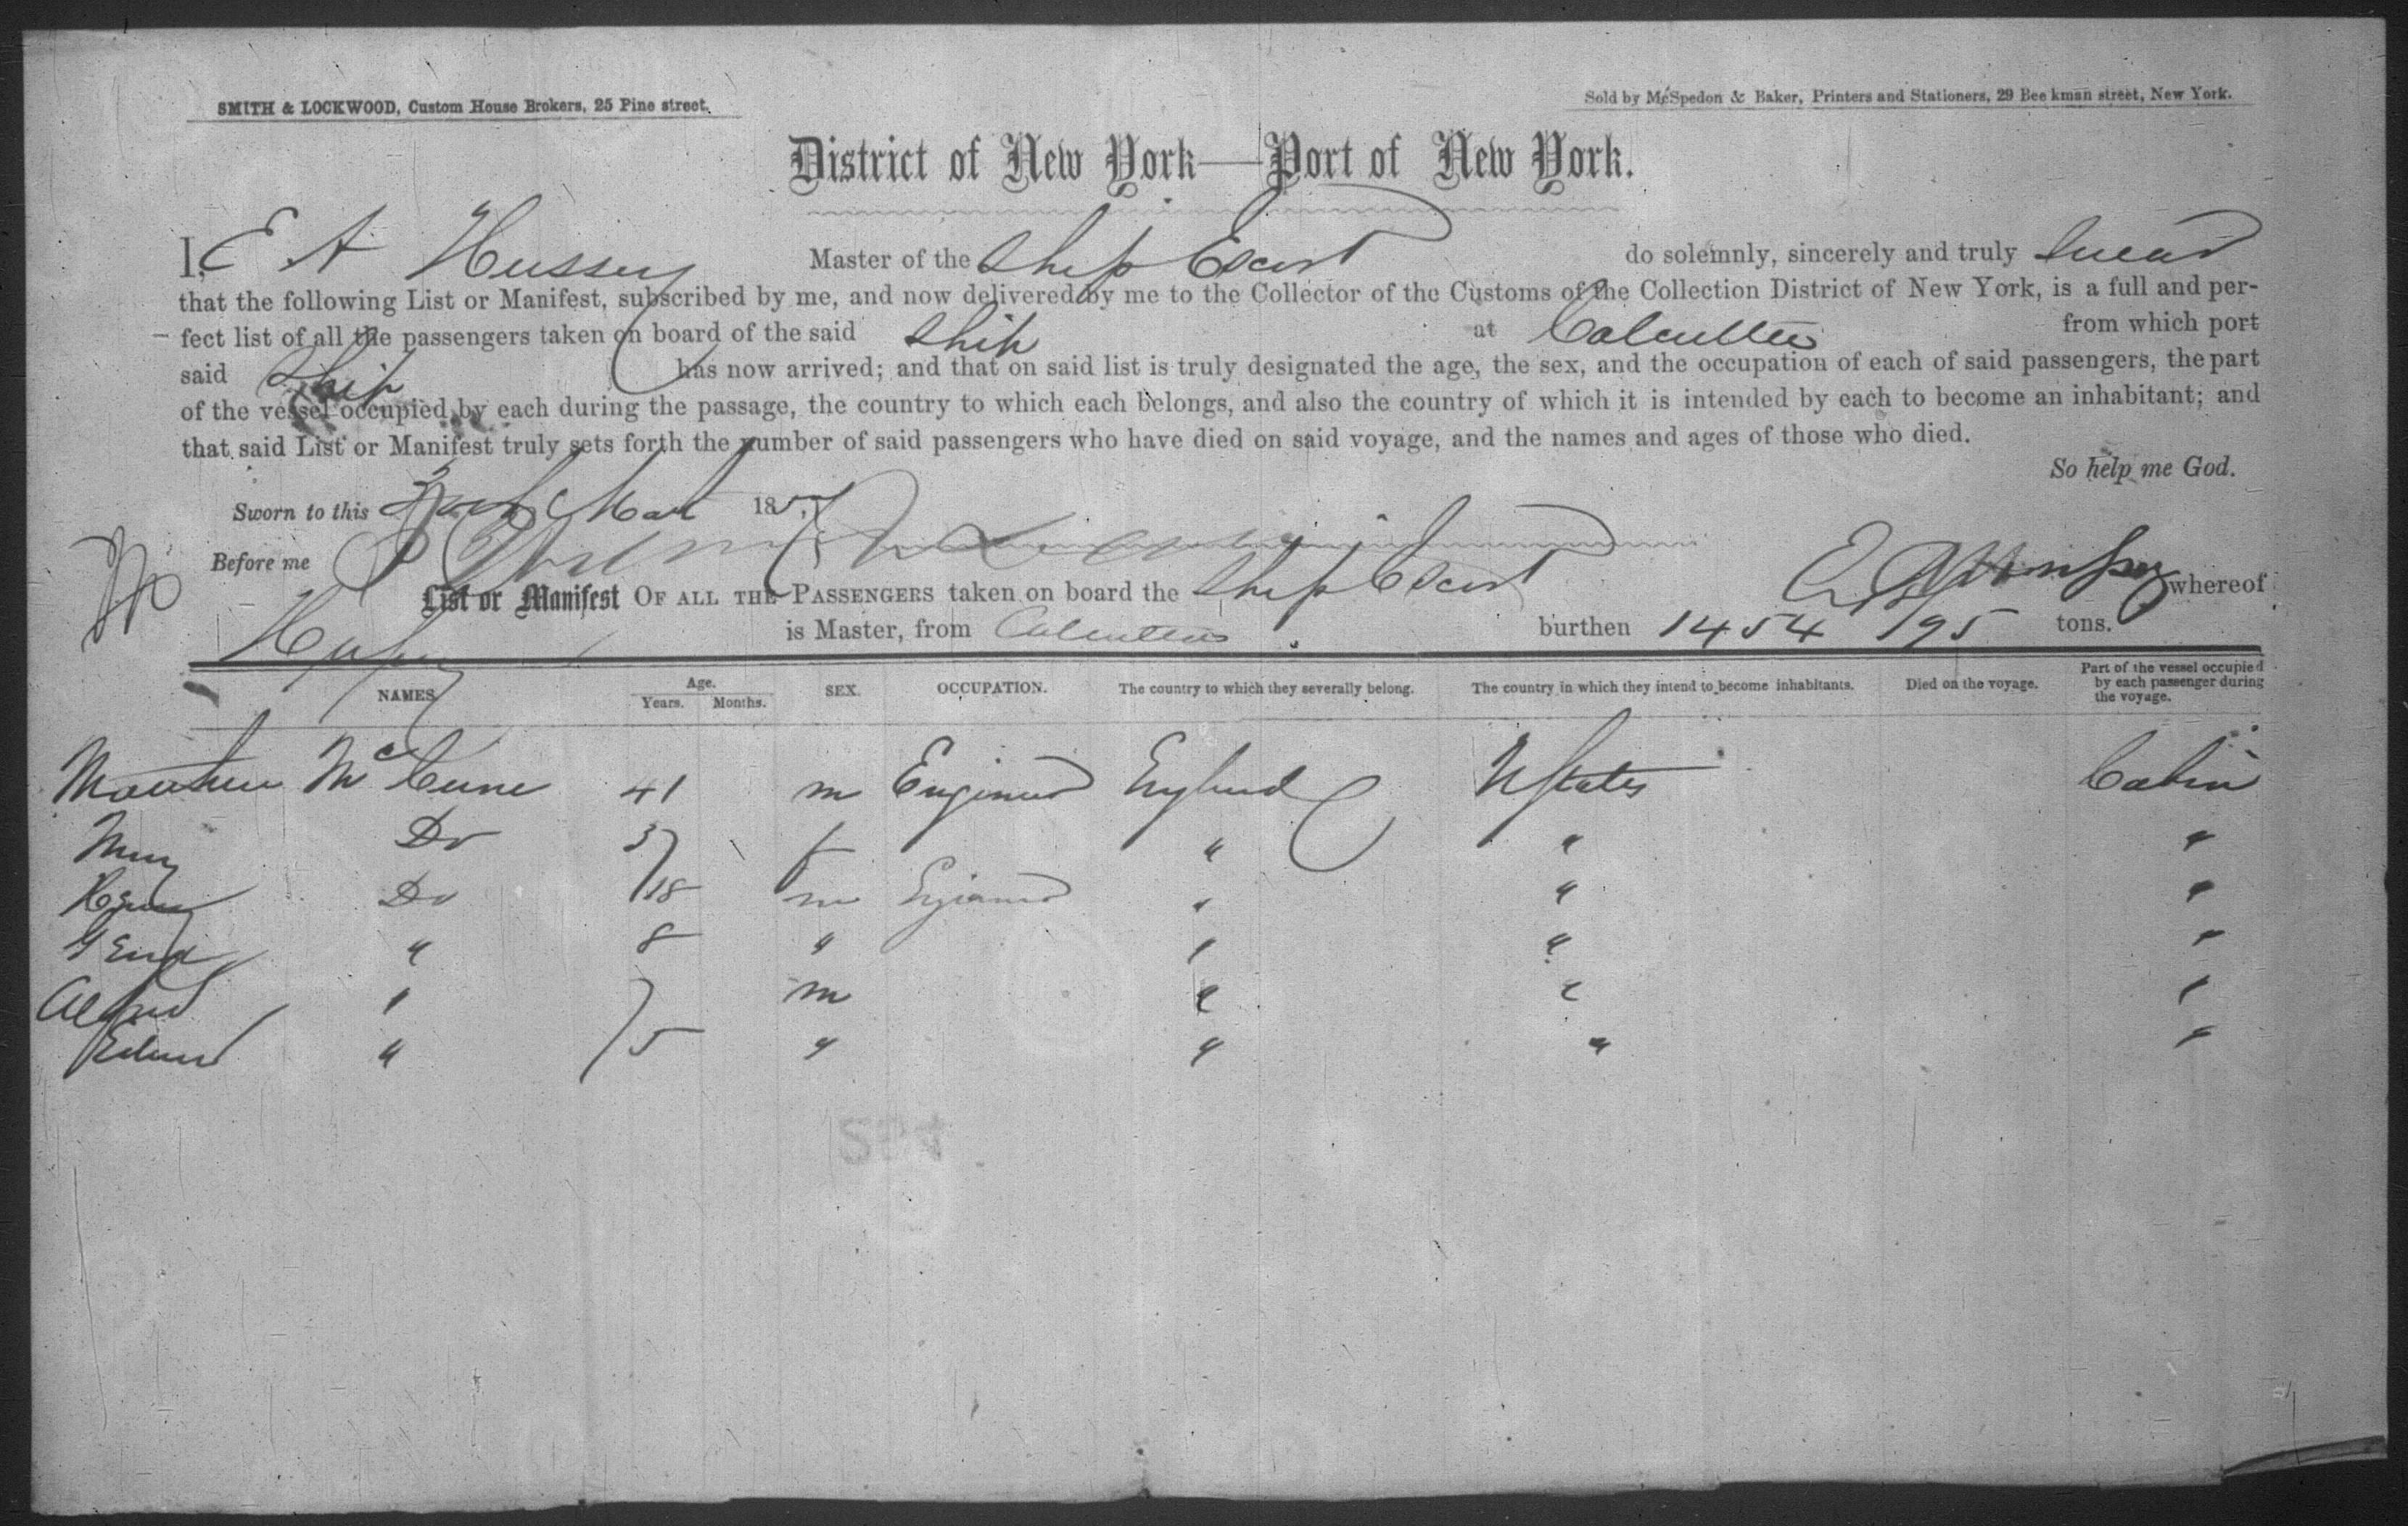 SMITH & LOCKWOOD, Custom House Brokers, 25 Pine street.
Sold by McSpedon & Baker, Printers and Stationers, 29 Beekman street, New York.
District of New York—Port of New York.
I, E A Hussey Master of the Ship Escort do solemnly, sincerely and truly Swear
that the following List or Manifest, subscribed by me, and now delivered by me to the Collector of the Customs of the Collection District of New York, is a full and per-
fect list of all the passengers taken on board of the said Ship at Calcutta from which port
said Ship has now arrived; and that on said list is truly designated the age, the sex, and the occupation of each of said passengers, the part
of the vessel occupied by each during the passage, the country to which each belongs, and also the country of which it is intended by each to become an inhabitant; and
that said List or Manifest truly sets forth the number of said passengers who have died on said voyage, and the names and ages of those who died.
So help me God.
Sworn to this Mar 1857
Before me
List or Manifest OF ALL THE PASSENGERS taken on board the Ship Escort whereof
Hussey is Master, from Calcutta burthen 1454 195 tons.
NAMES Age. Years. Months. SEX. OCCUPATION. The country to which they severally belong. The country in which they intend to become inhabitants. Died on the voyage. Part of the vessel occupied by each passenger during the voyage.
Matthew McCune 41 m Engineer England U States Cabin
Mary Do 37 f " " "
Henry Do 18 m Engineer " " "
" 8 " " " "
Alfred " 7 m " " "
Edward " 5 " " " "